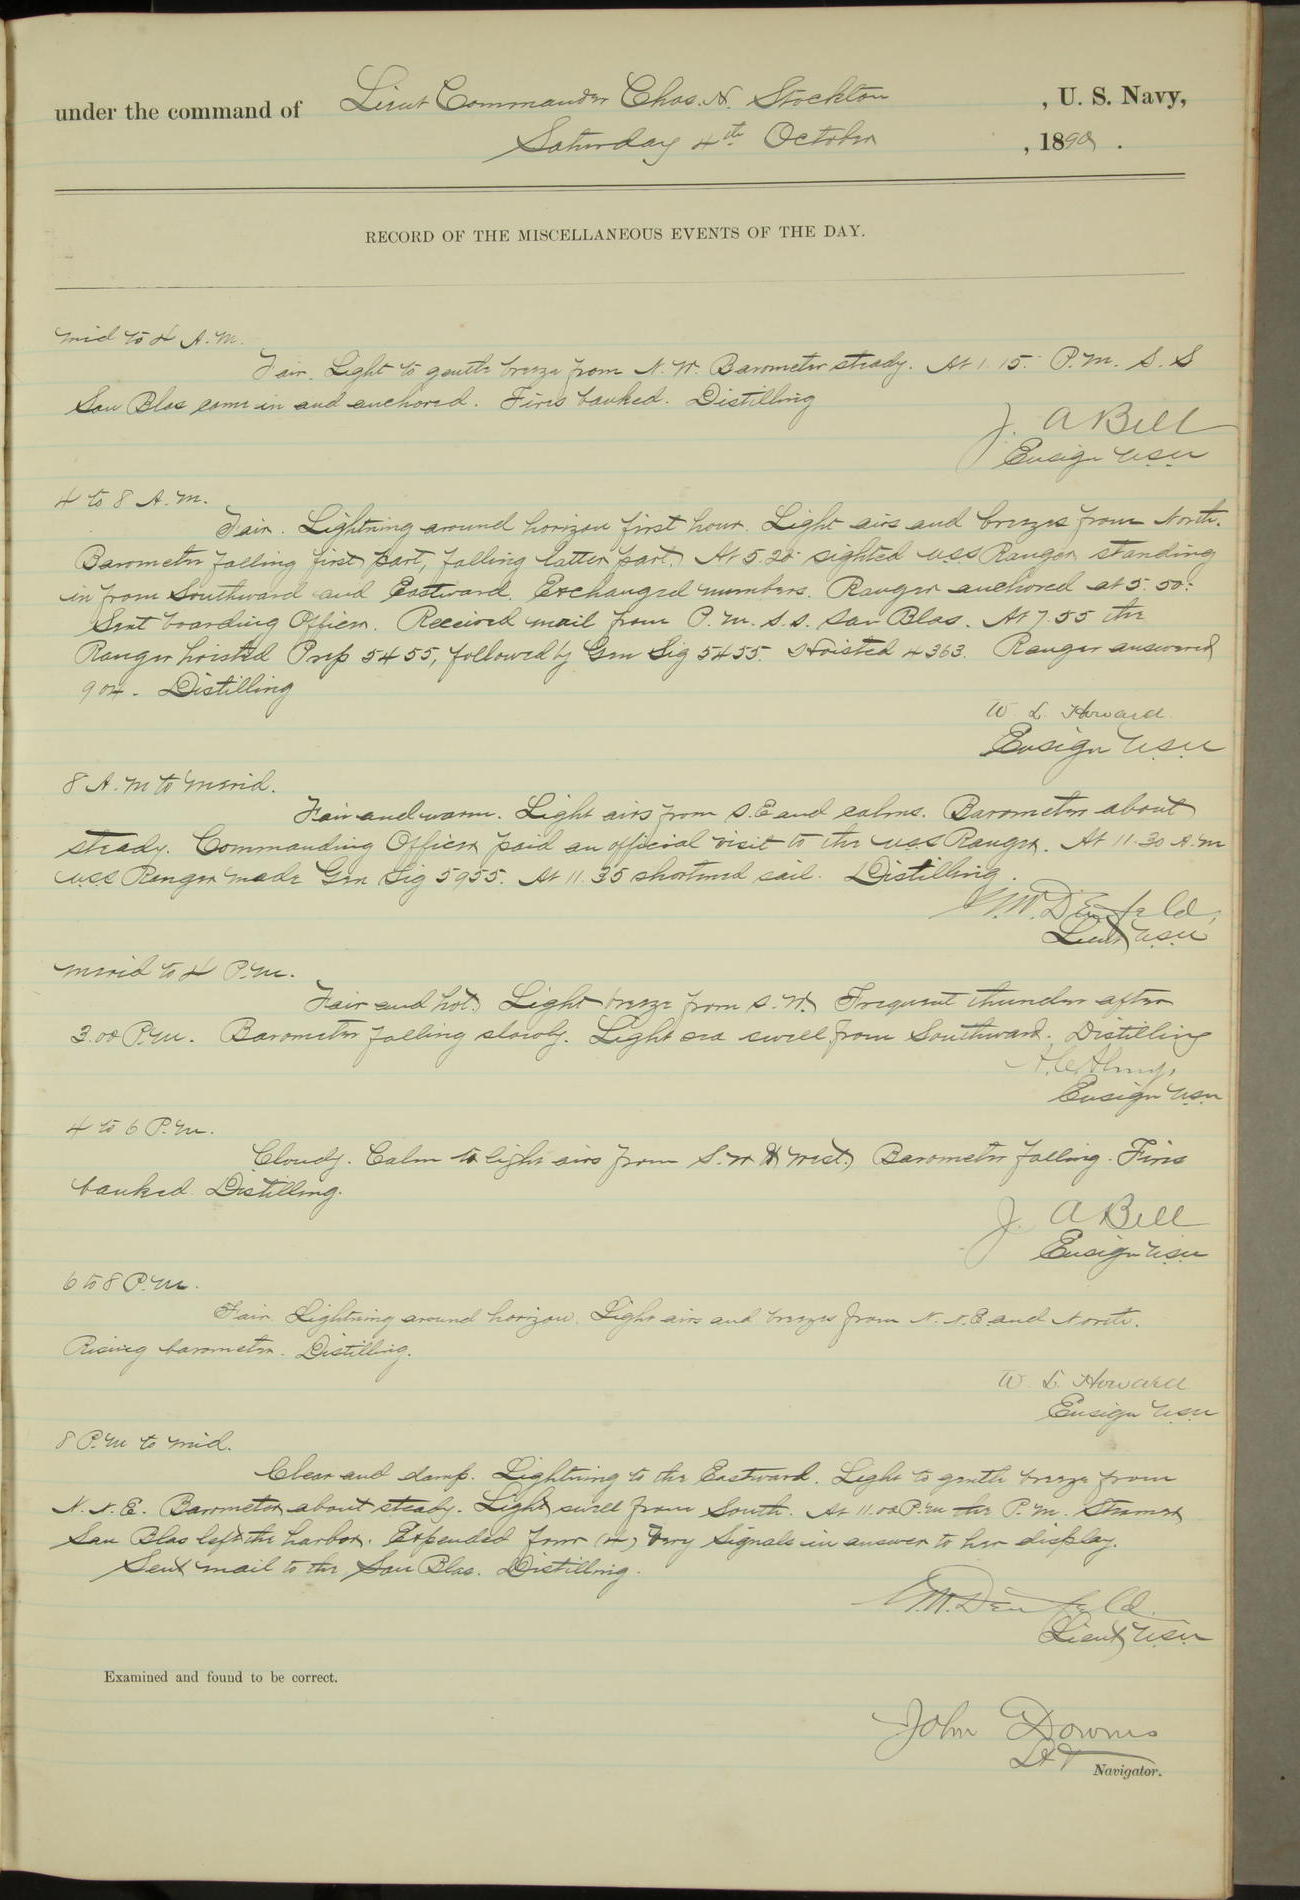 under the command of Lieut Commander Chas. H. Stockton, U. S. Navy,
Saturday 4th October, 1890.
RECORD OF THE MISCELLANEOUS EVENTS OF THE DAY.
Mid to 4 A.M.
Fair. Light to gentle breeze from N.W. Barometer steady. At 1.15 P.M. S.S
San Blas came in and anchored. Fires banked. Distilling
J. A Bell
Ensign U.S.N
4 to 8 A.M.
Fair. Lightning around horizon first hour. Light airs and breezes from North.
Barometer falling first part, falling latter part. At 5.20 sighted U.S.S Ranger standing
in from Southward and Eastward. Exchanged numbers. Ranger anchored at 5.50.
Sent boarding Officer. Received mail from P.M. S.S. San Blas. At 7.55 the
Ranger hoisted Prep 5455, followed by Gen Sig 5455. Hoisted 4363. Ranger answered
904. Distilling
W L Howard
Ensign U.S.N
8 A.M to Merid.
Fair and warm. Light airs from S.E and calms. Barometer about
steady. Commanding Officer paid an official visit to the U.S.S Ranger. At 11.30 A.M
U.S.S Ranger made Gen Sig 5955. At 11.35 shortened sail. Distilling.
Denfeld,
Lieut U.S.N
Merid to 4 P.M.
Fair and hot. Light breeze from S.W. Frequent thunder after
3.00 P.M. Barometer falling slowly. Light sea swell from Southward. Distilling
Ensign U.S.N
4 to 6 P.M.
Cloudy. Calm to light airs from S.W & West. Barometer falling. Fires
banked. Distilling.
J. A Bell
Ensign U.S.N
6 to 8 P.M.
Fair. Lightning around horizon. Light airs and breezes from N.N.E. and North.
Rising barometer. Distilling.
W L Howard
Ensign U.S.N
8 P.M to mid.
Clear and damp. Lightning to the Eastward. Light to gentle breeze from
N.N.E. Barometer about steady. Light swell from South. At 11.00 P.M the P.M. Steamer
San Blas left the harbor. Expended four (4) Very Signals in answer to her display.
Sent mail to the San Blas. Distilling.
Denfeld.
Lieut U.S.N
Examined and found to be correct.
John Downes
Lt
Navigator.